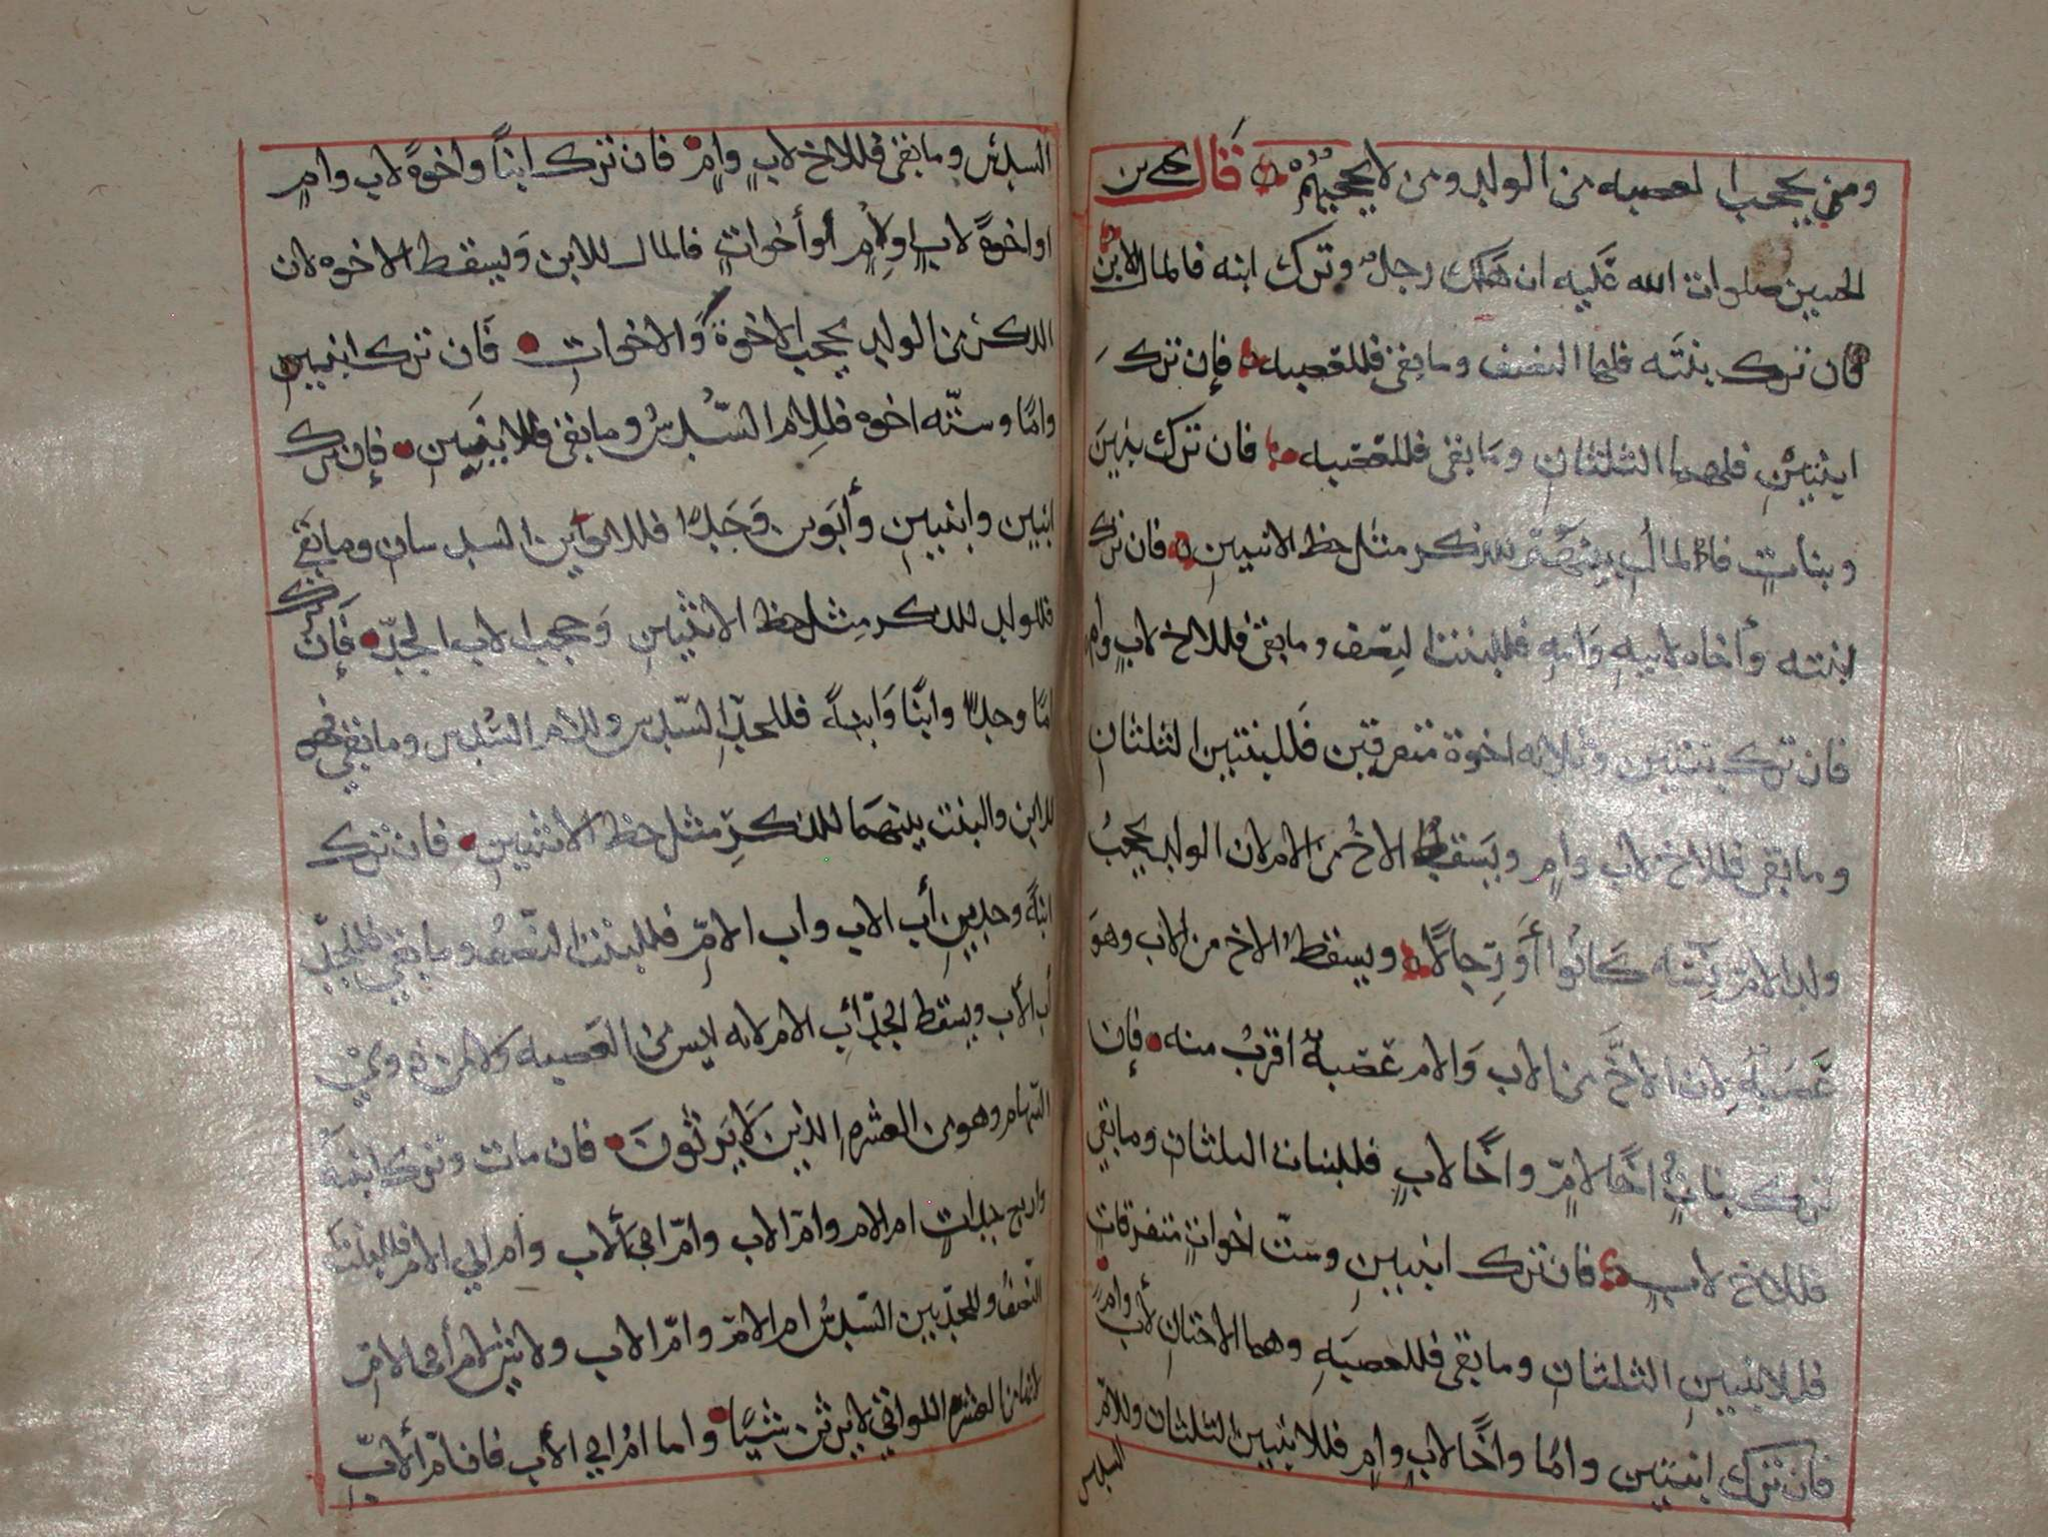 ومن يحجب العصبه من الولد ومن لا يحجبهم قال يحيى بن
الحسين صلوات الله عليه ان هلك رجل وترك ابنه فالمال للابن
فان ترك بنته فلها النصف وما بقى فللعصبه فإن ترك
ابنتين فلهما الثلثان وما بقى فللعصبه فان ترك بنين
وبنات فالمال بينهم للذكر مثل حظ الانثيين فان ترك
ابنته وأخاه لابيه وامه فللبنت النصف وما بقى فللاخ لاب وام
فان ترك بنتين وثلاثه اخوة متفرقين فللبنتين الثلثان
وما بقى فللاخ لاب وام ويسقط الاخ من الام لان الولد يحجب
ولد الام كانوا أو رجالا ويسقط الاخ من الاب وهو
عصبة لان الاخ من الاب والام عصبة اقرب منه فإن
ترك بنات اخا لام واخا لاب فللبنات الثلثان وما بقي
فللاخ لاب فان ترك ابنتين وست اخوات متفرقات
فللابنتين الثلثان وما بقى فللعصبه وهما الاختان لأب وام
فان ترك ابنتين واما واخا لاب وام فللابنتين الثلثان وللام
السدس
السدس وما بقى فللاخ لاب وام فان ترك ابنا واخوة لاب وام
او اخوة لاب او لام أو أخوات فالمال للابن ويسقط الاخوه لان
الذكر من الولد يحجب الاخوة والاخوات فان ترك ابنين
واما وستة اخوه فللام السدس وما بقى فللابنين فإن ترك
ابنين وابنتين وأبوين وجدا فللابوين السدسان وما بقى
فللولد للذكر مثل حظ الانثيين وحجب الاب الجد فإن ترك
اما وجدا وابنا وابنة فللجد السدس وللام السدس وما بقى فهو
للابن والبنت بينهما للذكر مثل حظ الانثيين فان ترك
ابنة وجدين أب الاب واب الام فللبنت النصف وما بقي فللجد
أب الأب ويسقط الجد أب الام لانه ليس من العصبه ولا من ذوي
السهام وهو من العشره الذين لا يرثون فان مات وترك ابنة
واربع جدات ام الام وام الاب وام ابي الأب وام ابي الام فللبنت
النصف وللجدتين السدس ام الام وام الاب ولا يرث ام أبى الام
لانها من العشره اللواتي لا يرثن شيئا واما ام ابي الأب فان ام الأب